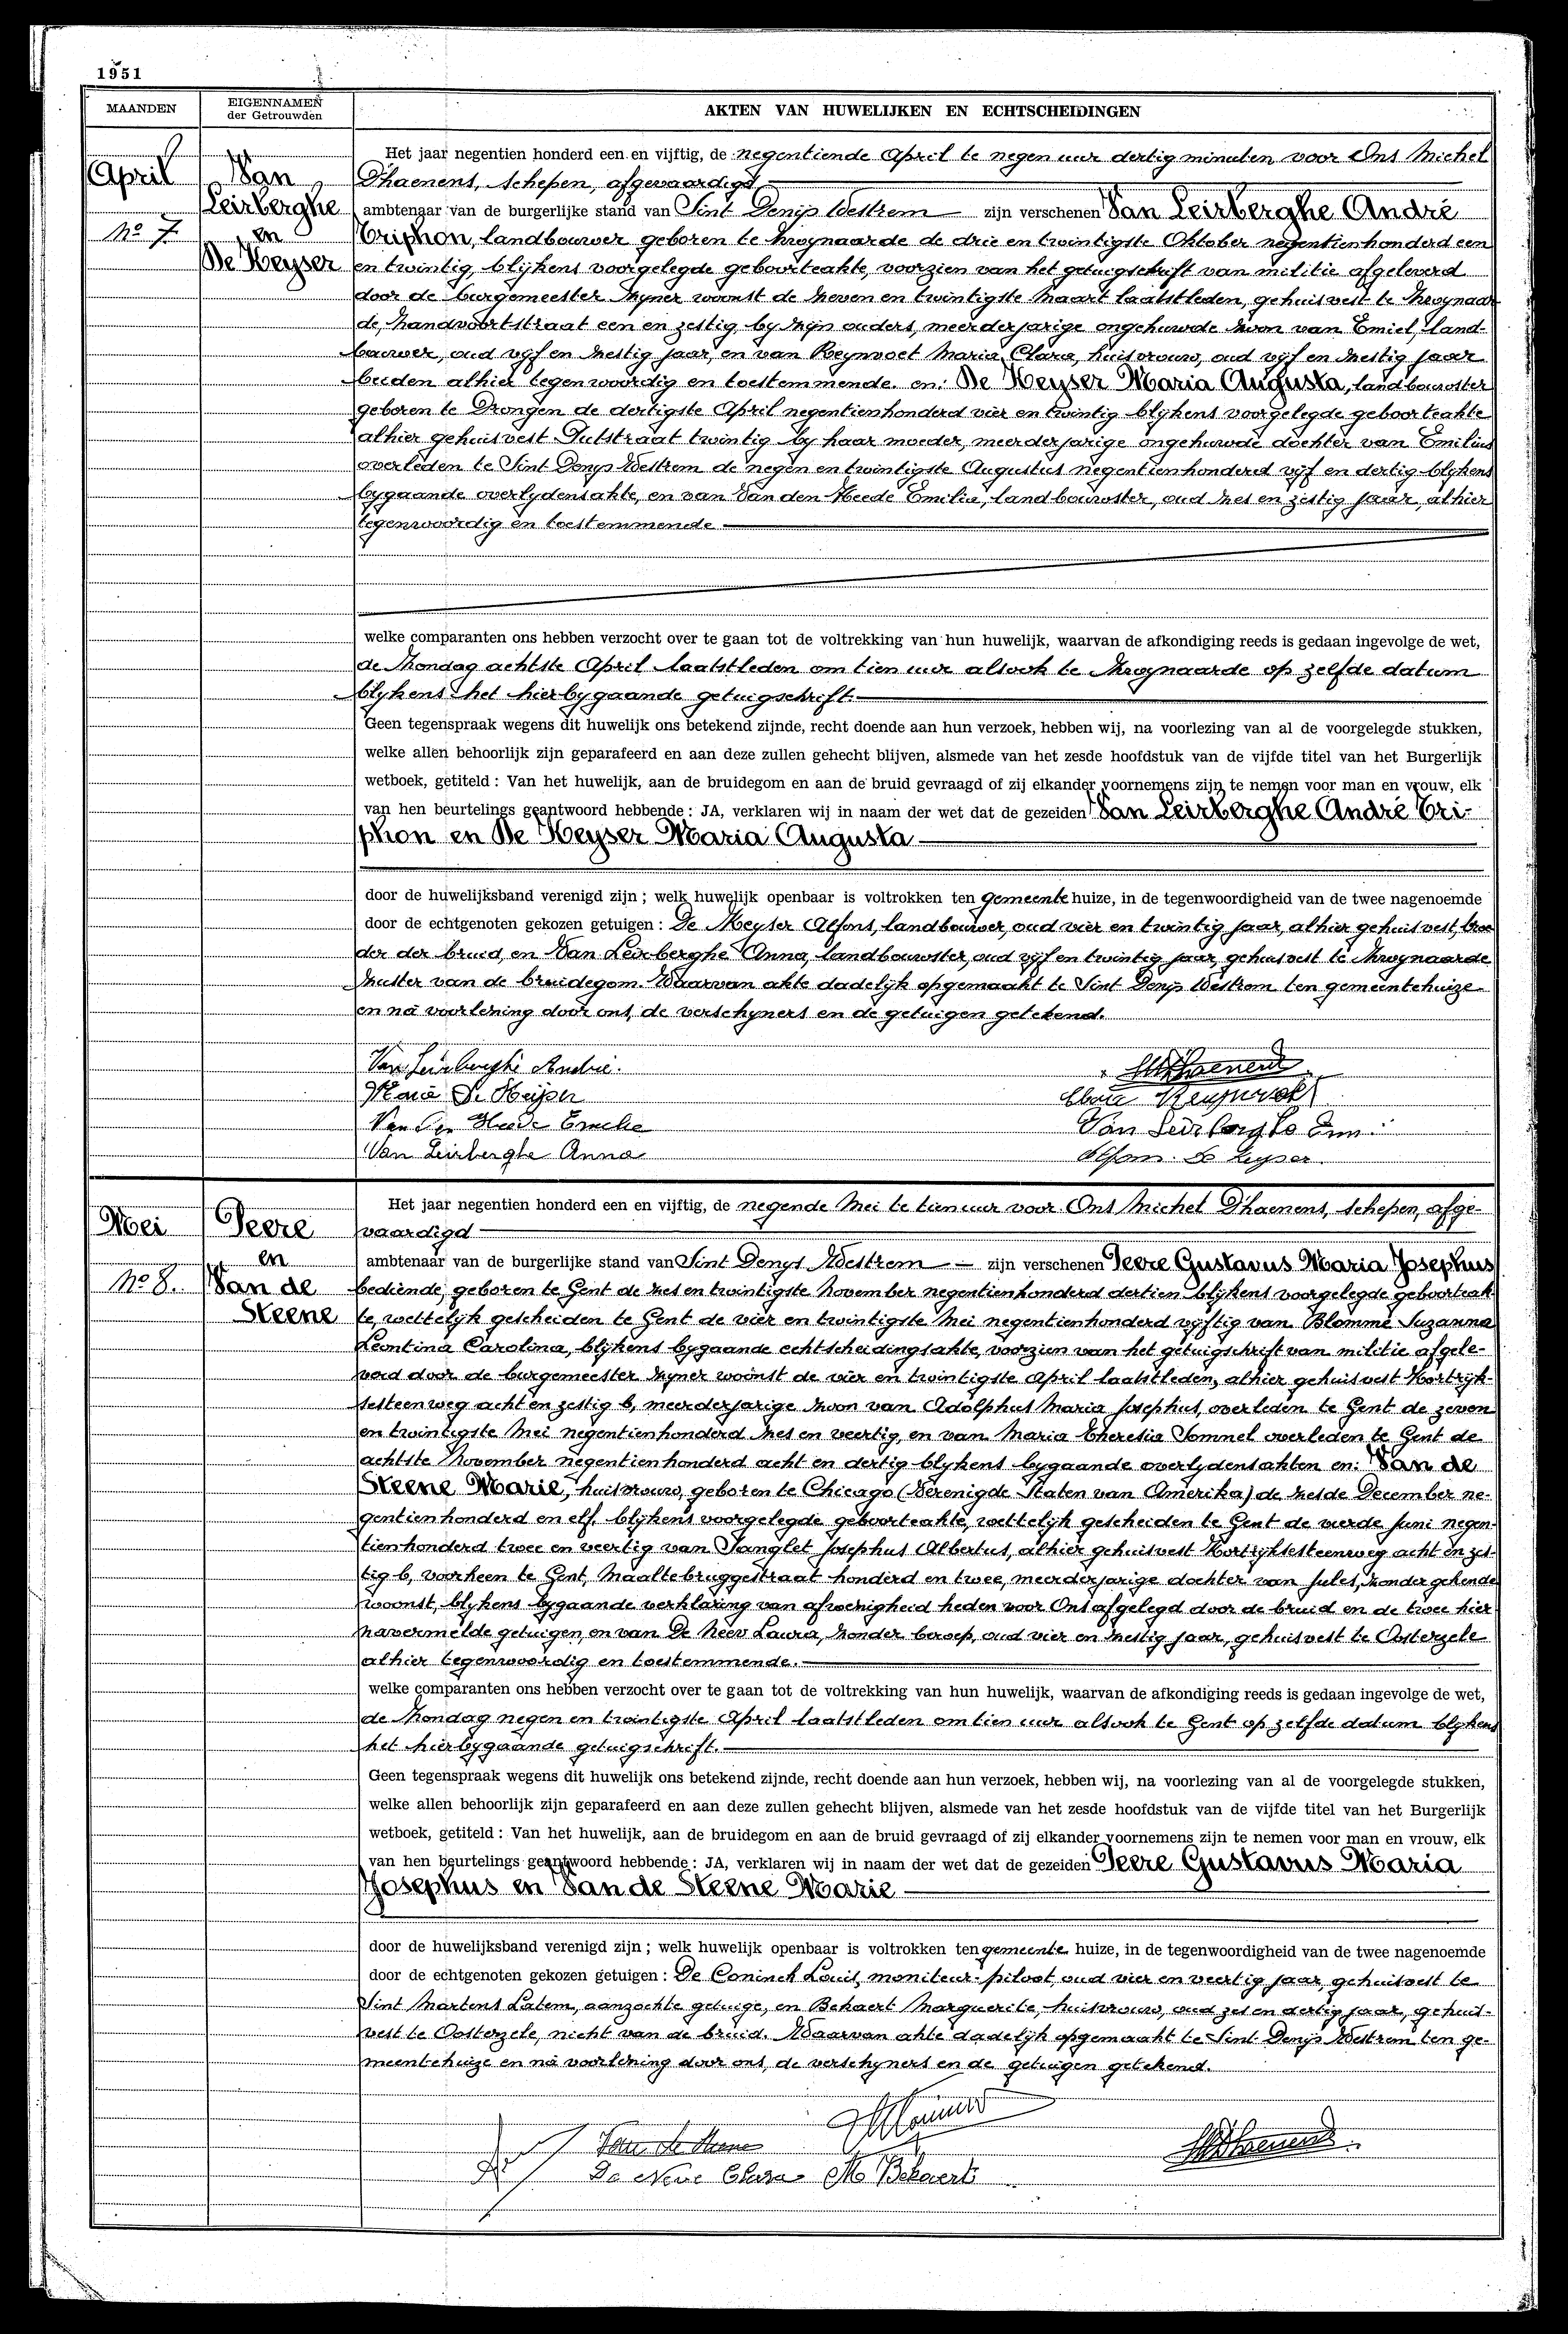 1951
MAANDEN
EIGENNAMEN
der Getrouwden
AKTEN VAN HUWELIJKEN EN ECHTSCHEIDINGEN
April
No 7.
Van
Leirberghe
en
De Keyser
Het jaar negentien honderd een en vijftig, de negentiende April te negen uur dertig minuten voor Ons Michel
D'haenens, schepen, afgevaardigd
ambtenaar van de burgerlijke stand van Sint Denijs Westrem zijn verschenen Van Leirberghe André
Triphon, landbouwer geboren te Zwynaarde de drie en twintigste Oktober negentienhonderd een
en twintig, blijkens voorgelegde geboorteakte, voorzien van het getuigschrift van militie afgeleverd
door de burgemeester zyner woonst de zeven en twintigste Maart laatstleden, gehuisvest te Zwynaar
de, Zandvoortstraat een en zestig by zijn ouders, meerderjarige ongehuwde zoon van Emiel, land-
bouwer, oud vijf en zestig jaar, en van Reynvoet Maria Clara, huisvrouw, oud vijf en zestig jaar
beiden alhier tegenwoordig en toestemmende. en: De Keyser Maria Augusta, landbouwster
geboren te Drongen de dertigste April negentienhonderd vier en twintig blykens voorgelegde geboorteakte
alhier gehuisvest Putstraat twintig by haar moeder, meerderjarige ongehuwde dochter van Emilius
overleden te Sint Denys Westrem de negen en twintigste Augustus negentienhonderd vijf en dertig blykens
bygaande overlydensakte, en van Van den Heede Emilia, landbouwster, oud zes en zestig jaar, alhier
tegenwoordig en toestemmende
welke comparanten ons hebben verzocht over te gaan tot de voltrekking van hun huwelijk, waarvan de afkondiging reeds is gedaan ingevolge de wet,
de Zondag achtste April laatstleden om tien uur alsook te Zwynaarde op zelfde datum
blykens het hierbygaande getuigschrift.
Geen tegenspraak wegens dit huwelijk ons betekend zijnde, recht doende aan hun verzoek, hebben wij, na voorlezing van al de voorgelegde stukken,
welke allen behoorlijk zijn geparafeerd en aan deze zullen gehecht blijven, alsmede van het zesde hoofdstuk van de vijfde titel van het Burgerlijk
wetboek, getiteld : Van het huwelijk, aan de bruidegom en aan de bruid gevraagd of zij elkander voornemens zijn te nemen voor man en vrouw, elk
van hen beurtelings geantwoord hebbende : JA, verklaren wij in naam der wet dat de gezeiden Van Leirberghe André Tri-
phon en De Keyser Maria Augusta
door de huwelijksband verenigd zijn ; welk huwelijk openbaar is voltrokken ten gemeente huize, in de tegenwoordigheid van de twee nagenoemde
door de echtgenoten gekozen getuigen : De Keyser Alfons, landbouwer, oud vier en twintig jaar, alhier gehuisvest, broe
der der bruid, en Van Leirberghe Anna, landbouwster, oud vijf en twintig jaar, gehuisvest te Zwynaarde
zuster van de bruidegom. Waarvan akte dadelijk opgemaakt te Sint Denijs Westrem ten gemeentehuize
en na voorlezing door ons, de verschyners en de getuigen getekend.
Van Leirberghe Andrie.
MDhaenens
Maria De Keijser
Clara Reynvoet
Van den Heede Emelie
Van Leirberghe Em.
Van Leirberghe Anna
Alfons De Keyser
Mei
No 8.
Peere
en
Van de
Steene
Het jaar negentien honderd een en vijftig, de negende Mei te tien uur voor Ons Michel D'haenens, schepen, afge-
vaardigd
ambtenaar van de burgerlijke stand van Sint Denys Westrem zijn verschenen Peere Gustavus Maria Josephus
bediende, geboren te Gent de zes en twintigste November negentienhonderd dertien blijkens voorgelegde geboorteak-
te, wettelijk gescheiden te Gent de vier en twintigste Mei negentienhonderd vijftig van Blomme Suzanna
Leontina Carolina, blijkens bygaande echtscheidingsakte, voorzien van het getuigschrift van militie afgele-
verd door de burgemeester zyner woonst de vier en twintigste April laatstleden, alhier gehuisvest Kortrijk-
sesteenweg acht en zestig b, meerderjarige zoon van Adolphus Maria Josephus, overleden te Gent de zeven
en twintigste Mei negentienhonderd zes en veertig, en van Maria Theresia Sommel overleden te Gent de
achtste November negentienhonderd acht en dertig blykens bygaande overlydensakten en: Van de
Steene Marie, huisvrouw, geboren te Chicago (Verenigde Staten van Amerika) de zesde December ne-
gentienhonderd en elf, blijkens voorgelegde geboorteakte, wettelijk gescheiden te Gent de vierde Juni negen-
tienhonderd twee en veertig van Sanglet Josephus Albertus, alhier gehuisvest Kortrijksesteenweg acht en zes-
tig b, voorheen te Gent, Maaltebruggestraat honderd en twee, meerderjarige dochter van Jules, zonder gekende
woonst, blykens bygaande verklaring van afwezigheid heden voor Ons afgelegd door de bruid en de twee hier
navermelde getuigen, en van De Neev Laura, zonder beroep, oud vier en zestig jaar, gehuisvest te Oosterzele
alhier tegenwoordig en toestemmende.
welke comparanten ons hebben verzocht over te gaan tot de voltrekking van hun huwelijk, waarvan de afkondiging reeds is gedaan ingevolge de wet,
de Zondag negen en twintigste April laatstleden om tien uur alsook te Gent op zelfde datum blykens
het hierbygaande getuigschrift.
Geen tegenspraak wegens dit huwelijk ons betekend zijnde, recht doende aan hun verzoek, hebben wij, na voorlezing van al de voorgelegde stukken,
welke allen behoorlijk zijn geparafeerd en aan deze zullen gehecht blijven, alsmede van het zesde hoofdstuk van de vijfde titel van het Burgerlijk
wetboek, getiteld : Van het huwelijk, aan de bruidegom en aan de bruid gevraagd of zij elkander voornemens zijn te nemen voor man en vrouw, elk
van hen beurtelings geantwoord hebbende : JA, verklaren wij in naam der wet dat de gezeiden Peere Gustavus Maria
Josephus en Van de Steene Marie
door de huwelijksband verenigd zijn ; welk huwelijk openbaar is voltrokken ten gemeente huize, in de tegenwoordigheid van de twee nagenoemde
door de echtgenoten gekozen getuigen : De Coninck Louis, moniteur-piloot, oud vier en veertig jaar, gehuisvest te
Sint Martens Latem, aanzochte getuige, en Bekaert Marguerite, huisvrouw, oud zes en dertig jaar, gehuis-
vest te Oosterzele, nicht van de bruid. Waarvan akte dadelijk opgemaakt te Sint Denijs Westrem ten ge-
meentehuize en na voorlezing door ons, de verschyners en de getuigen getekend.
Van de Steene
MDhaenens
De Neve Clara M Bekaert